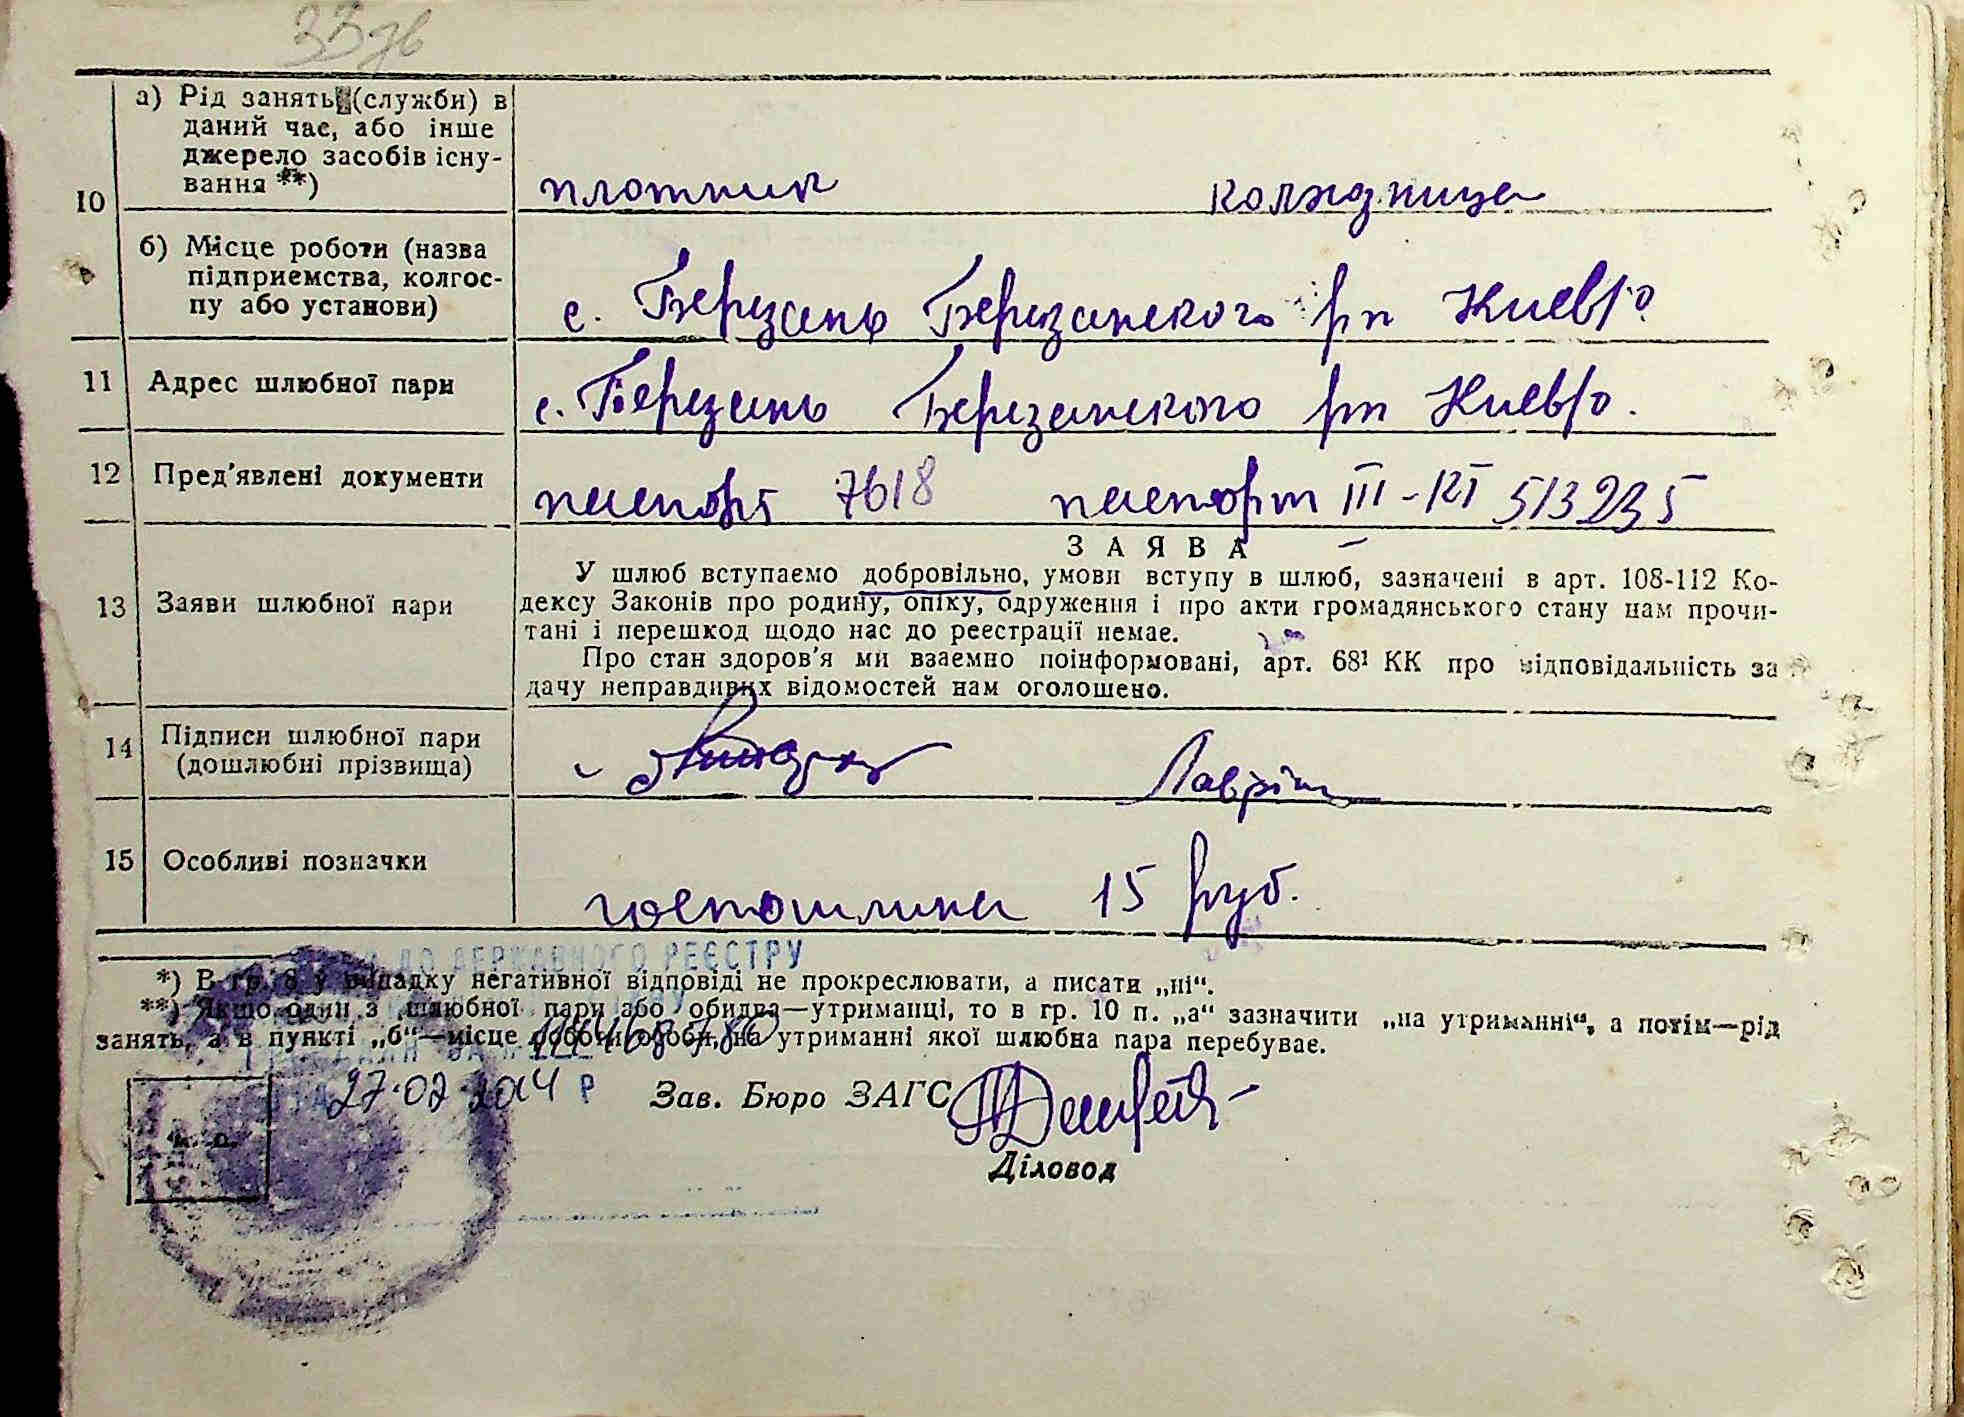 33зв
10
а) Рід занять (служби) в
даний час, або інше
джерело засобів існу-
вання **)
плотник колхозница
б) Місце роботи (назва
підприємства, колгос-
пу або установи)
с. Березань Березанского рп Киев/о.
11 Адрес шлюбної пари
с. Березань Березанского рп Киев/о.
12 Пред'явлені документи
паспорт 7618 паспорт III-КІ 513235
13 Заяви шлюбної пари
ЗАЯВА
У шлюб вступаємо добровільно, умови вступу в шлюб, зазначені в арт. 108-112 Ко-
дексу Законів про родину, опіку, одруження і про акти громадянського стану нам прочи-
тані і перешкод щодо нас до реєстрації немає.
Про стан здоров'я ми взаємно поінформовані, арт. 68¹ КК про відповідальність за
дачу неправдивих відомостей нам оголошено.
14 Підписи шлюбної пари
(дошлюбні прізвища)
Лавріт
15 Особливі позначки
госпошлина 15 руб.
ДО ДЕРЖАВНОГО РЕЄСТРУ
*) В гр. 8 у випадку негативної відповіді не прокреслювати, а писати „ні“.
**) Якщо один з шлюбної пари або обидва—утриманці, то в гр. 10 п. „а“ зазначити „на утриманні“, а потім—рід
занять, а в пункті „б“—місце роботи особи, на утриманні якої шлюбна пара перебуває.
27.02.2014 р
Зав. Бюро ЗАГС
М. П.
Діловод